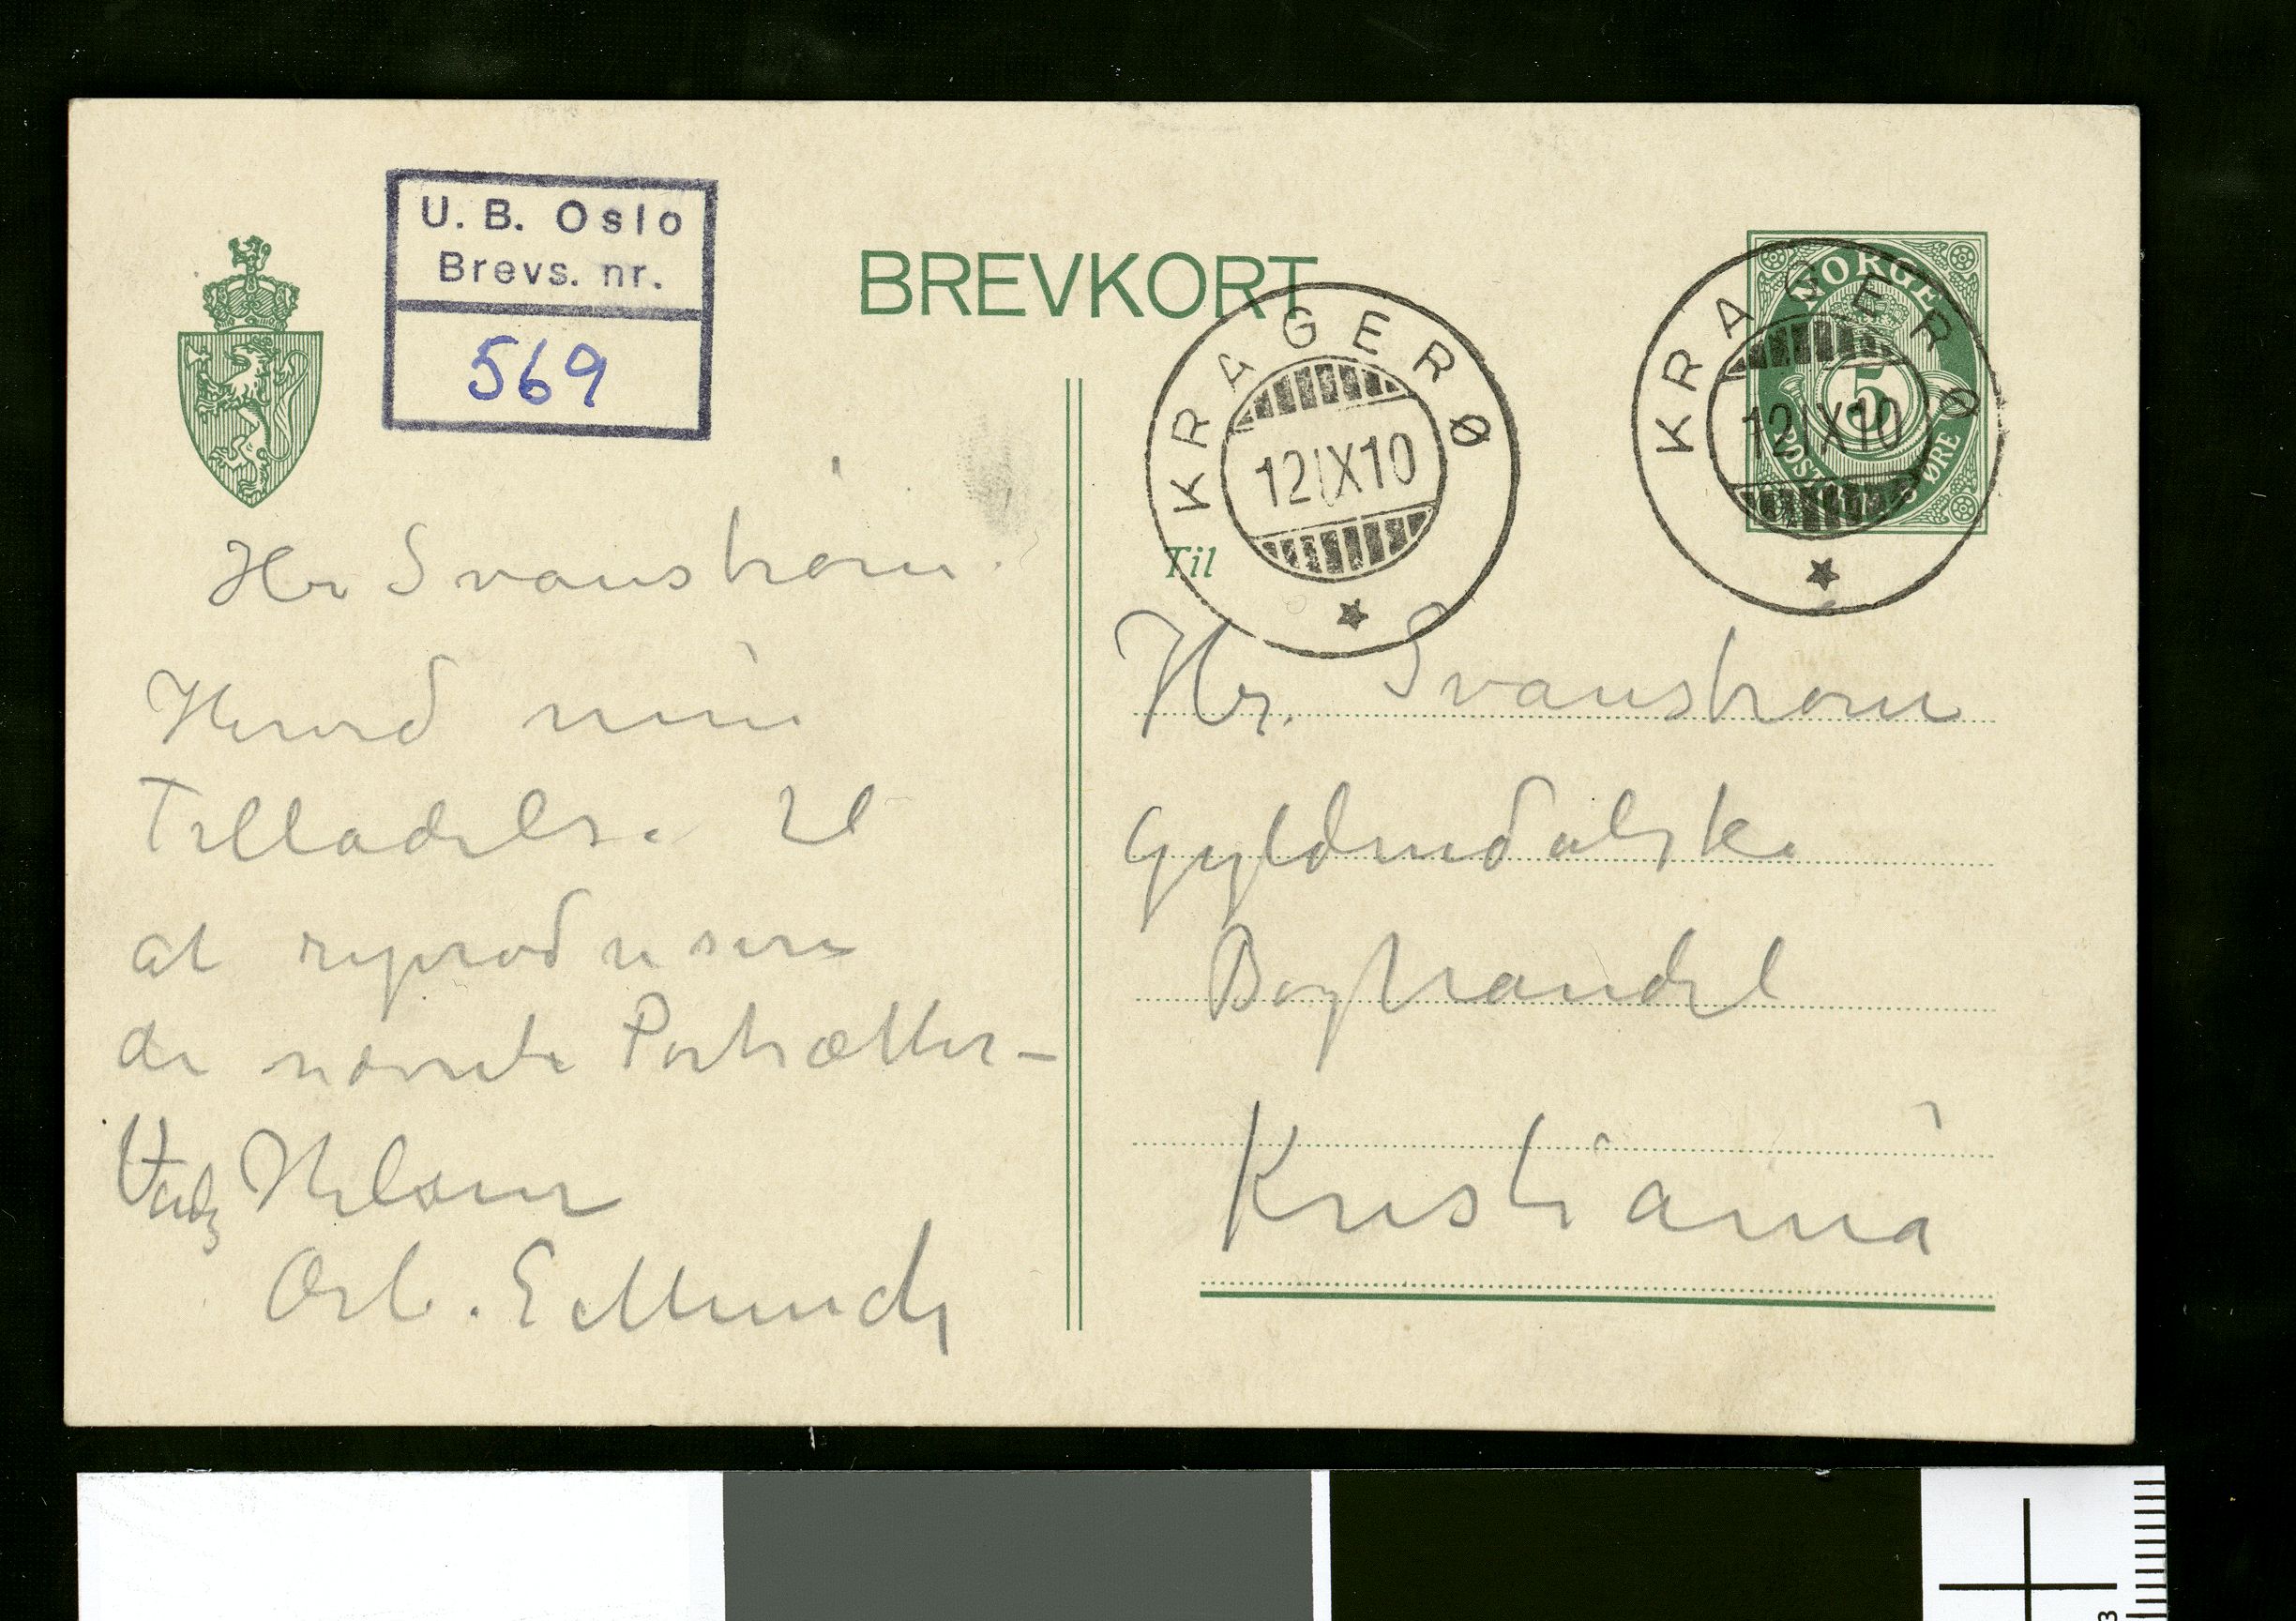 U. B. Oslo
Brevs. nr.
569
BREVKORT
Hr Svanstrøm.
Herved min
Tilladelse til
at reprodusere
de nævnte Portrætter –
Venlig Hilsen
Erb. E Munch
KRAGERØ
12 IX 10
NORGE
5
POSTFRIM. 5 ØRE
KRAGERØ
12 IX 10
Til
Hr. Svanstrøm
Gyldendalske
Boghandel
Kristiania
3